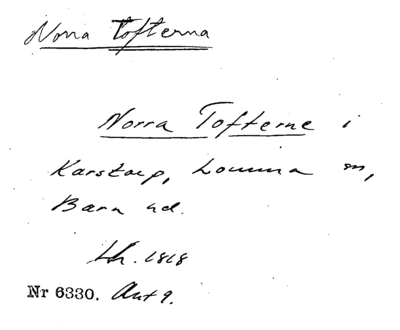 Norra Tofterna
Norra Tofterne i
Karstorp, Lomma sn,
Bara hd.
Lh. 1818
Nr 6330. Akt 9.